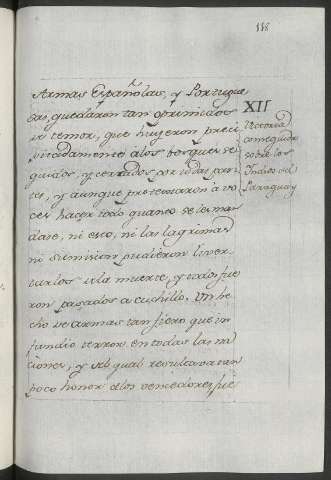 118
Armas Españolas, y Portugue
sas, quedaron tan oprimidos
de temor, que huyeron preci
pitadamente a los bosques se
guidos, y cercados por todas par
tes, y aunque pretextaron a vo
ces hacer todo quanto se les man
dase, ni esto, ni las lagrimas
ni sumision pudieron liver
tarlos de la muerte, y todos fue
ron pasados a cuchillo. Un he
cho de armas tan fiero que in
fundio terror en todas las na
ciones, y del qual resultava tan
poco honor a los vencedores fué
XII
Victoria
conseguida
sobre los
Indios del
Paraguay